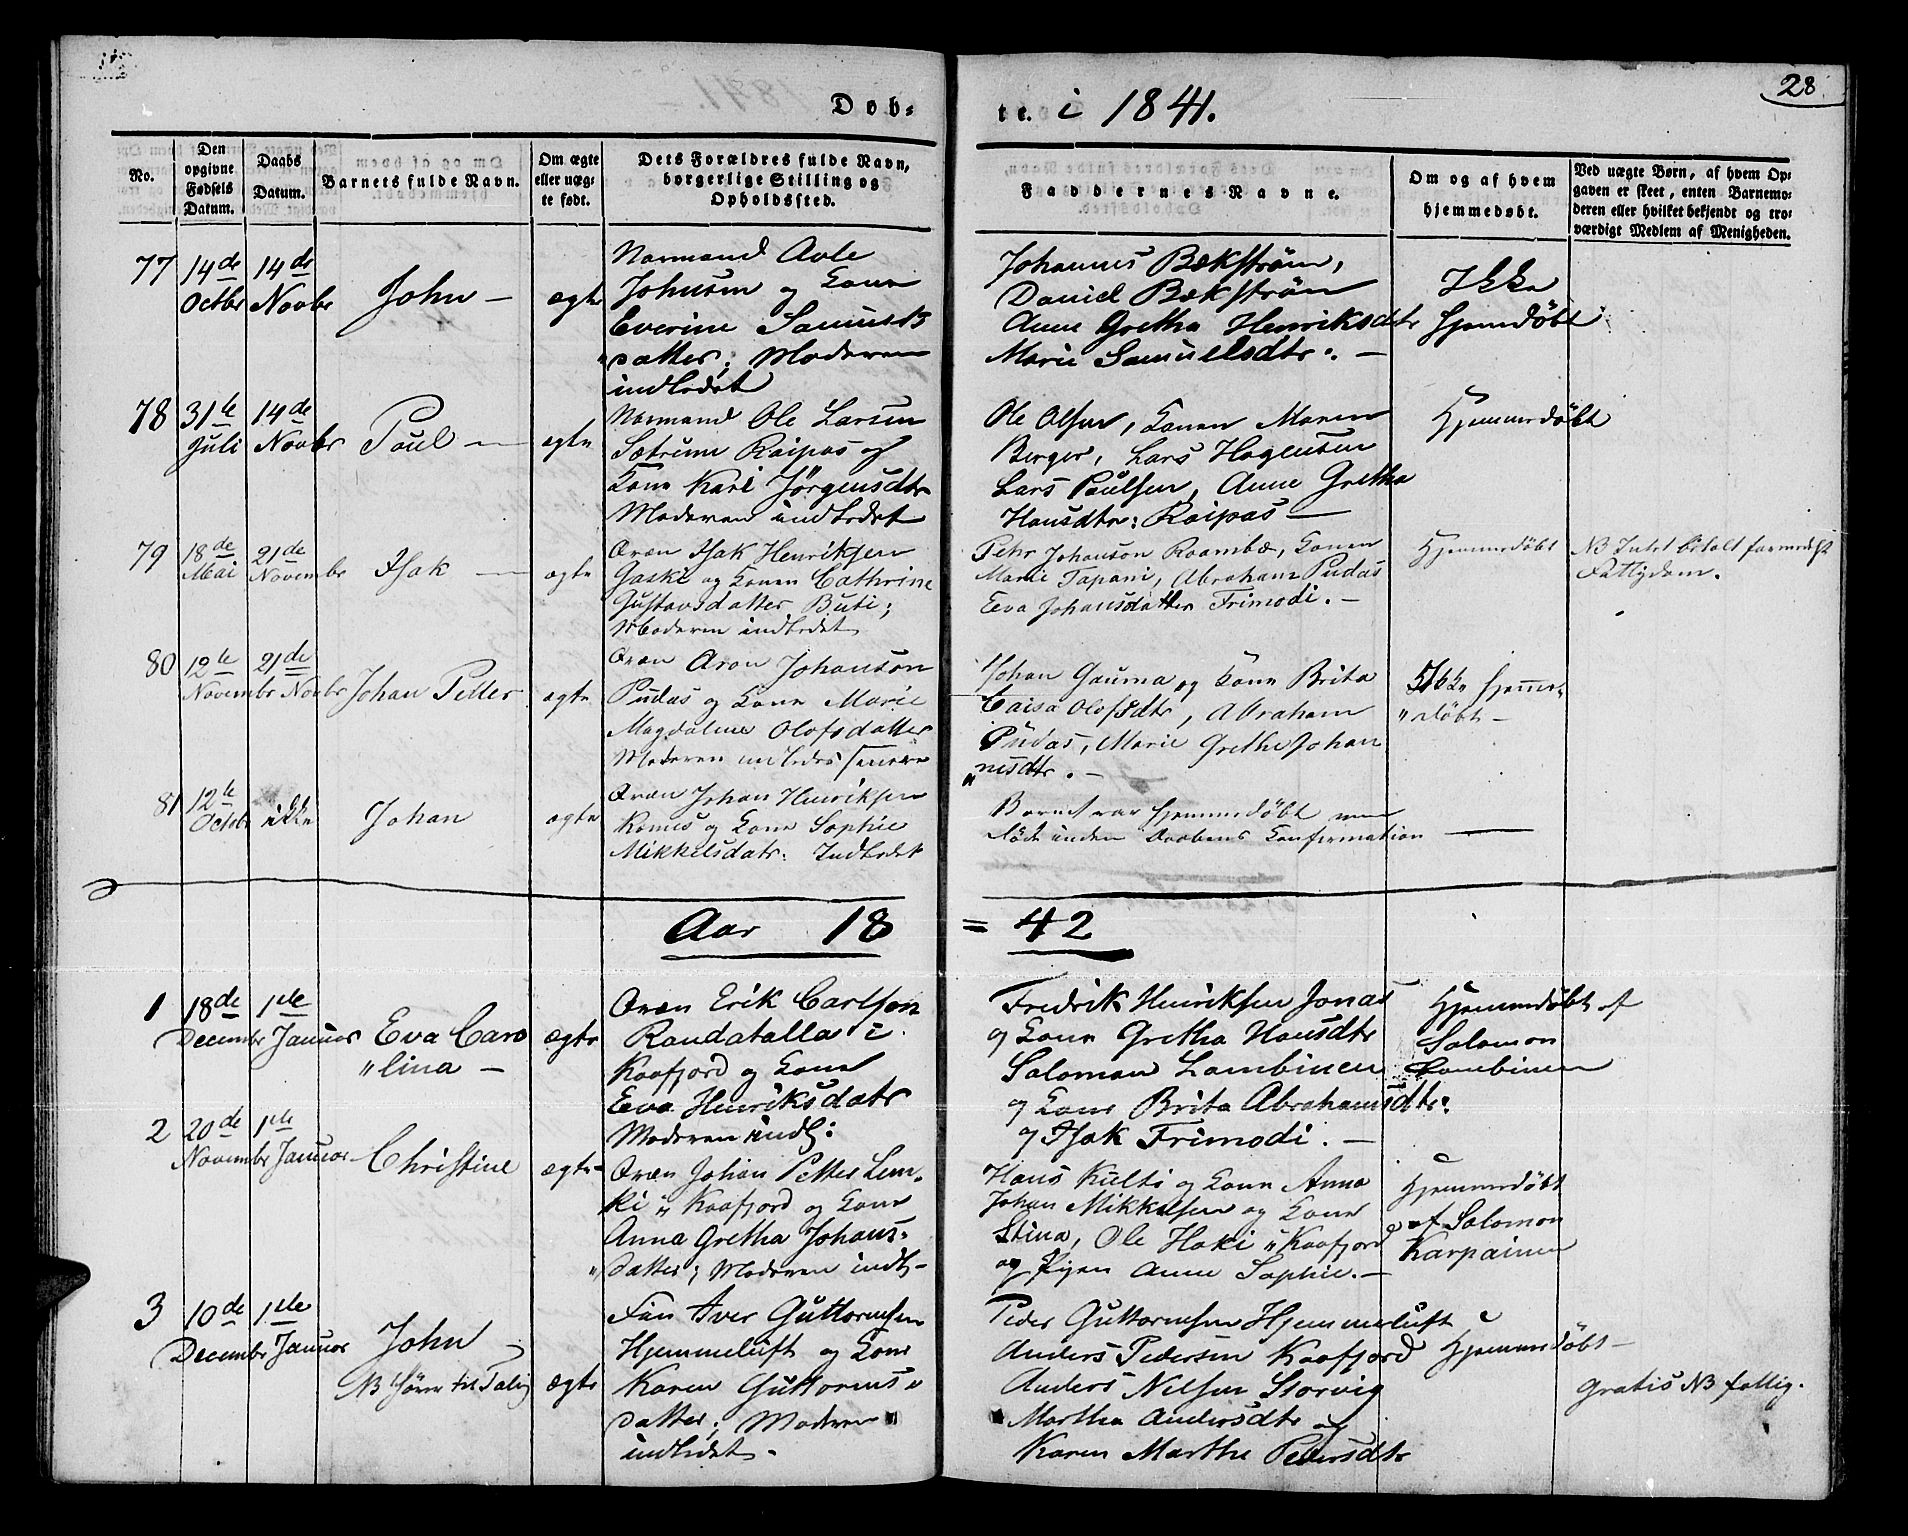 Døb-
te. i 1841.
28.
No.
Den opgivne Fødsels Datum.
Daabs Datum.
Barnets fulde Navn.
Om ægte eller uæg-te født.
Dets Forældres fulde Navn, borgerlige Stilling og Opholdssted.
Faddernes Navne.
Om og af hvem hjemmedøbt.
Ved uægte Børn, af hvem Op-
gaven er skeet, enten Barnemo-
deren eller hvilket bekjendt og tro-
værdigt Medlem af Menigheden.
77
14de Octbr
14de Novbr
John —
ægte
Normand Avle
Johnsen og Kone
Everine Samuels
"datter; Moderen
indledet
Johannes Bækstrøm,
Daniel Bækstrøm
Anne Gretha Henriksdtr
Marie Samuelsdtr. —
Ikke
hjemdøbt
78
31te Juli
14de Novbr
Paul —
ægte
Normand Ole Larsen
Sætrum Raipas og
Kone Kari Jørgensdtr
Moderen indledet
Ole Olsen, Konen Maren
Berger, Lars Hagensen
Lars Paulsen, Anne Gretha
Hansdtr: Raipas —
Hjemmedøbt
79
18de Mai
21de Novembr
Isak —
ægte
Qvæn Isak Henriksen
Gaski og Konen Cathrine
Gustavsdatter Buti;
Moderen indledet
Pehr Johanson Raambæ, Konen
Marie Tapani, Abraham Pudas
Eeva Johansdatter Frimodi. —
Hjemmedøbt
NB Intet betalt formedelst
Fattigdom.
80
12te Novembr
21de Novbr
Johan Petter
ægte
Qvæn Aron Johanson
Pudas og Kone Marie
Magdaline Olofsdatter
Moderen indledes senere
Johan Gauma og Kone Brita
Caisa Olofsdtr, Abraham
Pudas, Marie Grethe Johan
"nesdtr. —
Ikke hjemme-
"døbt —
81
12te Octbr
ikke
Johan
ægte
Qvæn Johan Henriksen
Komes og Kone Sophie
Mikkelsdatr: Indledet
Barnet var hjemmedøbt men
døde inden Daabens Confirmation
Aar 18 = 42
1
18de Decembr
1ste Januar
Eva Caro
"lina —
ægte
Qvæn Erik Carlson
Randatalla i
Kaafjord og Kone
Eva Henriksdatr
Moderen indl:
Fredrik Henriksen Jonas
og Kone Gretha Hansdtr
Salomon Lambinen
og Kone Brita Abrahamsdtr:
og Isak Frimodi. —
Hjemmedøbt af
Salomon
Lambinen
2
20de Novembr
1ste Januar
Christine
ægte
Qvæn Johan Petter Lem-
ki i Kaafjord og Kone
Anna Gretha Johans-
"datter; Moderen indl —
Hans Kulti og Kone Anna
Johan Mikkelsen og Kone
Stina, Ole Haki i Kaafjord
og Pigen Anne Sophie. —
Hjemmedøbt
af Salomon
Karpainen
3
10de Decembr
1ste Januar
John
NB Sønn til
ægte
Fin Iver Guttormsen
Hjemmeluft og Kone
Karen Guttorms"
datter; Moderen
indledet.
Peder Guttormsen Hjemmeluft
Anders Pedersen Kaafjord
Anders Nilsen Storvig
Martha Andersdtr og
Karen Marthe Pedersdtr
Hjemmedøbt —
Gratis NB fattig.